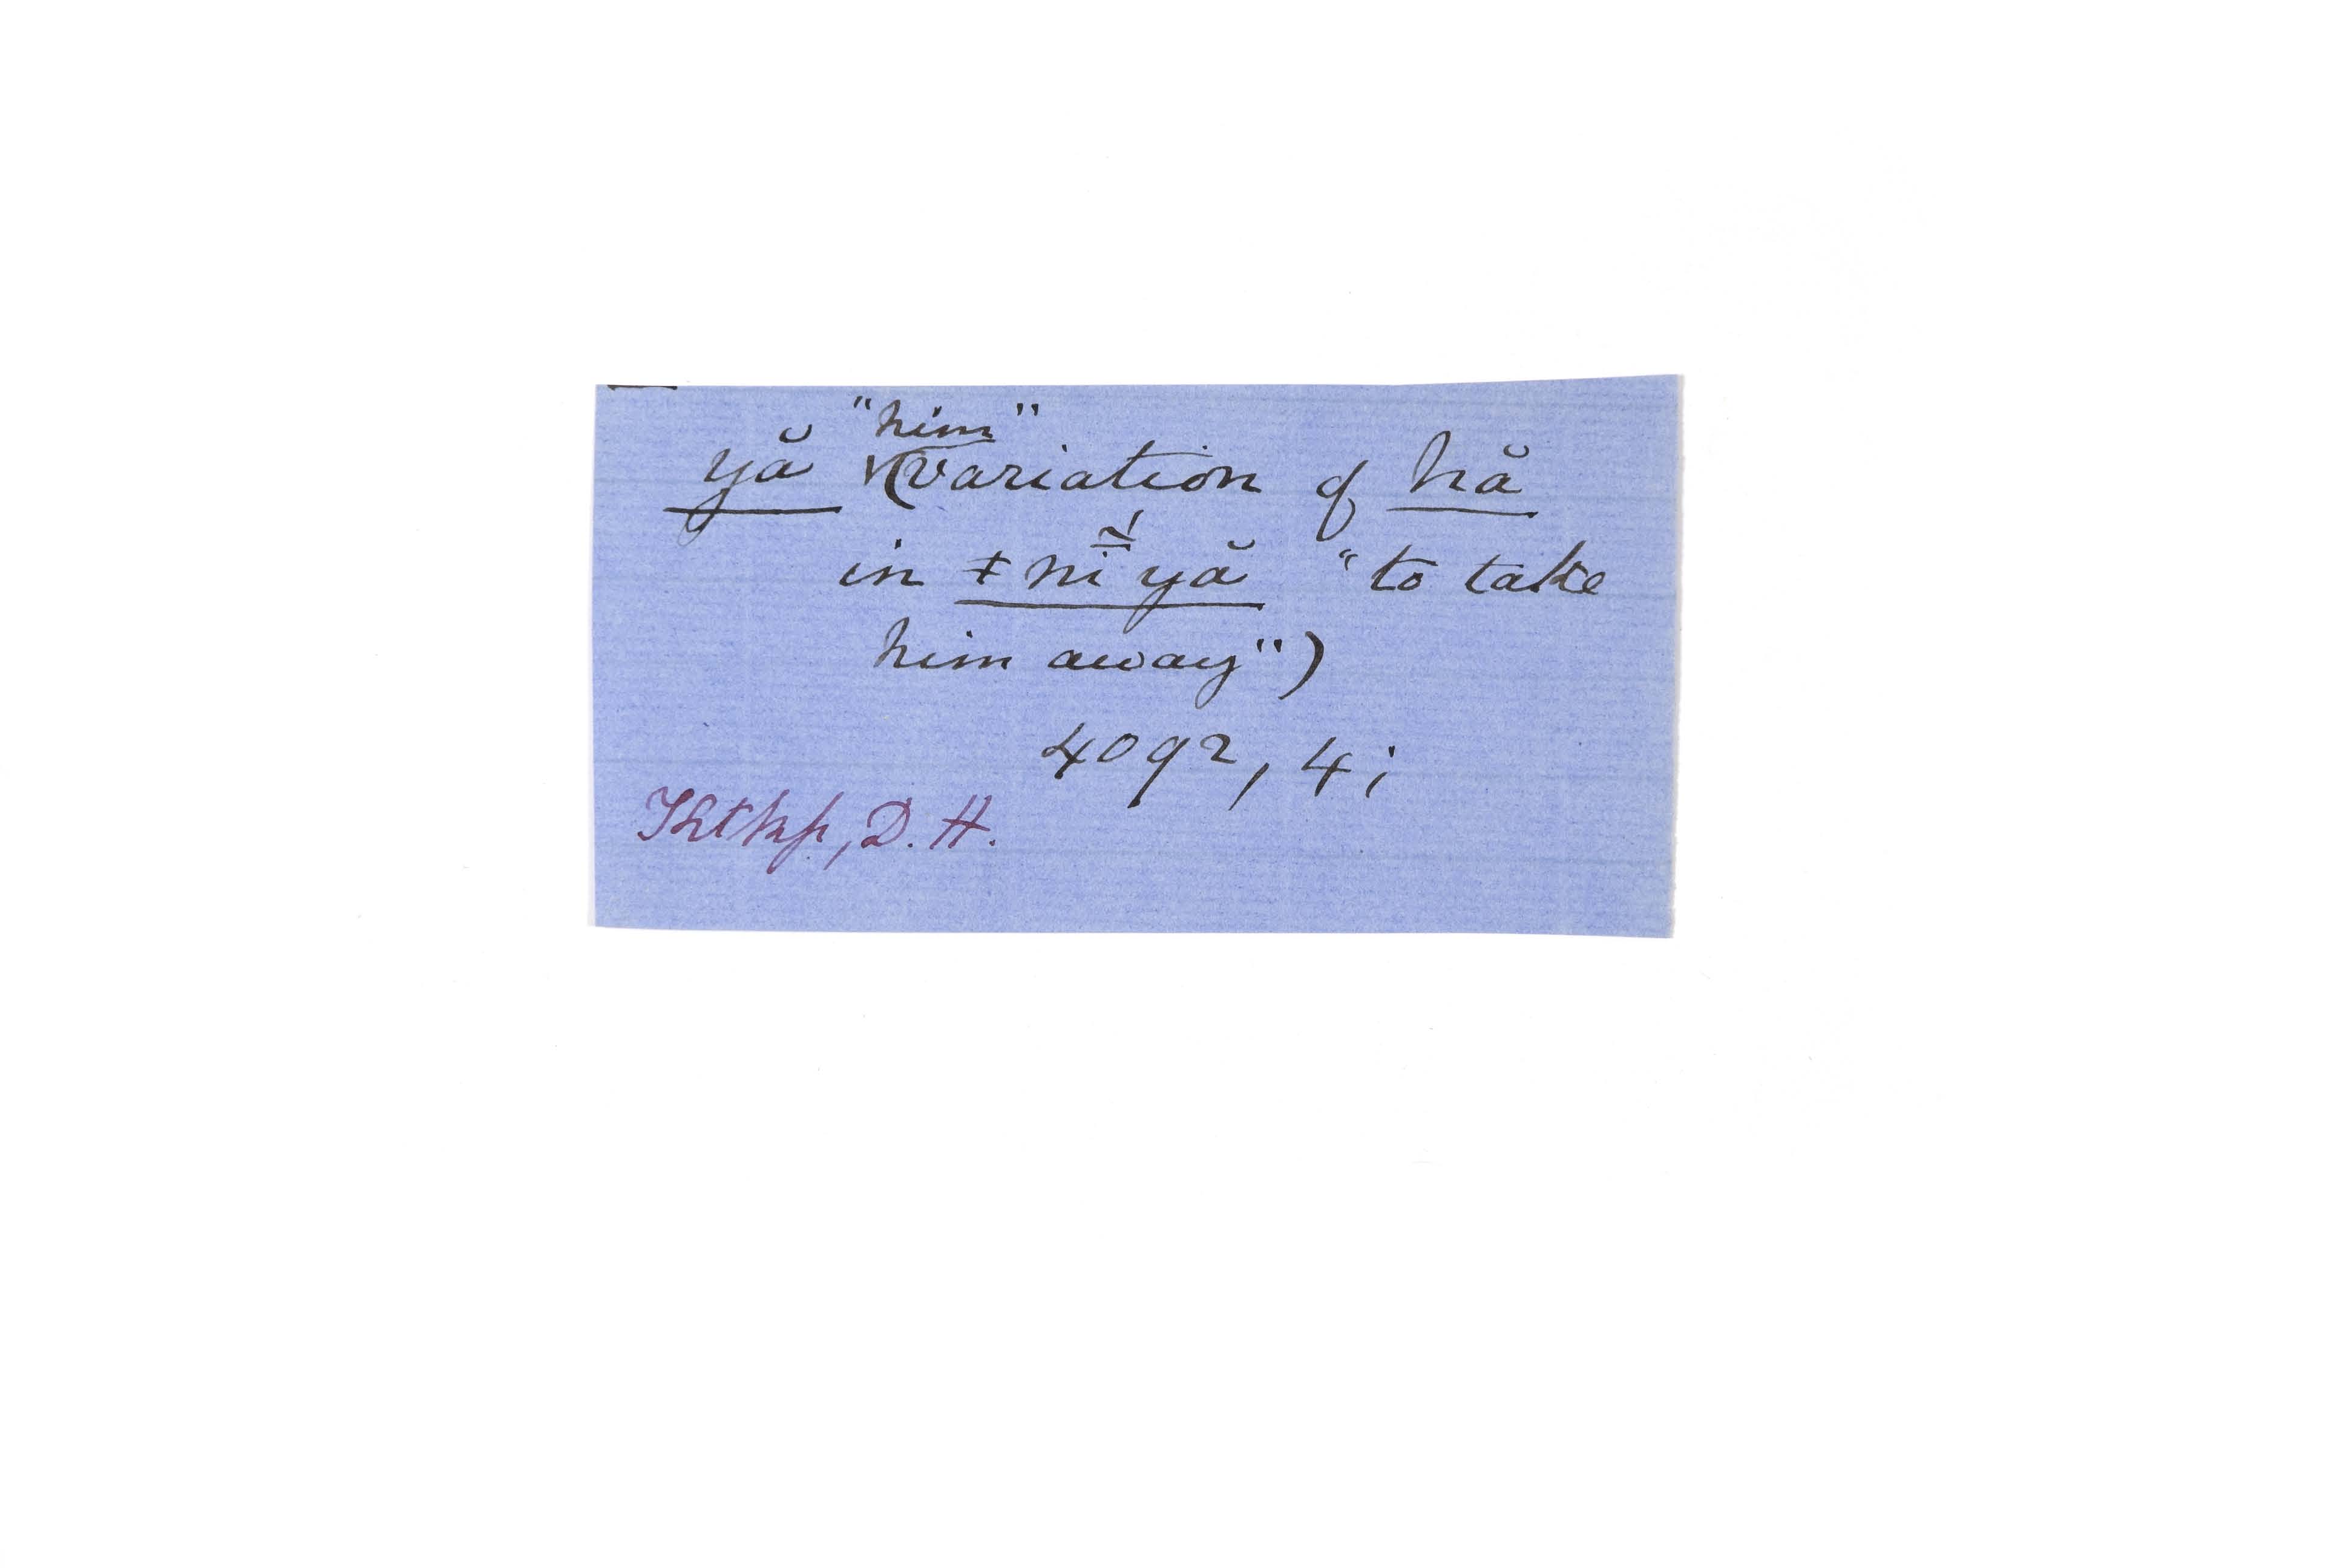 yă "him" (variation of hă
in ǂnī̃́ yă "to take
him away")
4092, 4;
D. H.